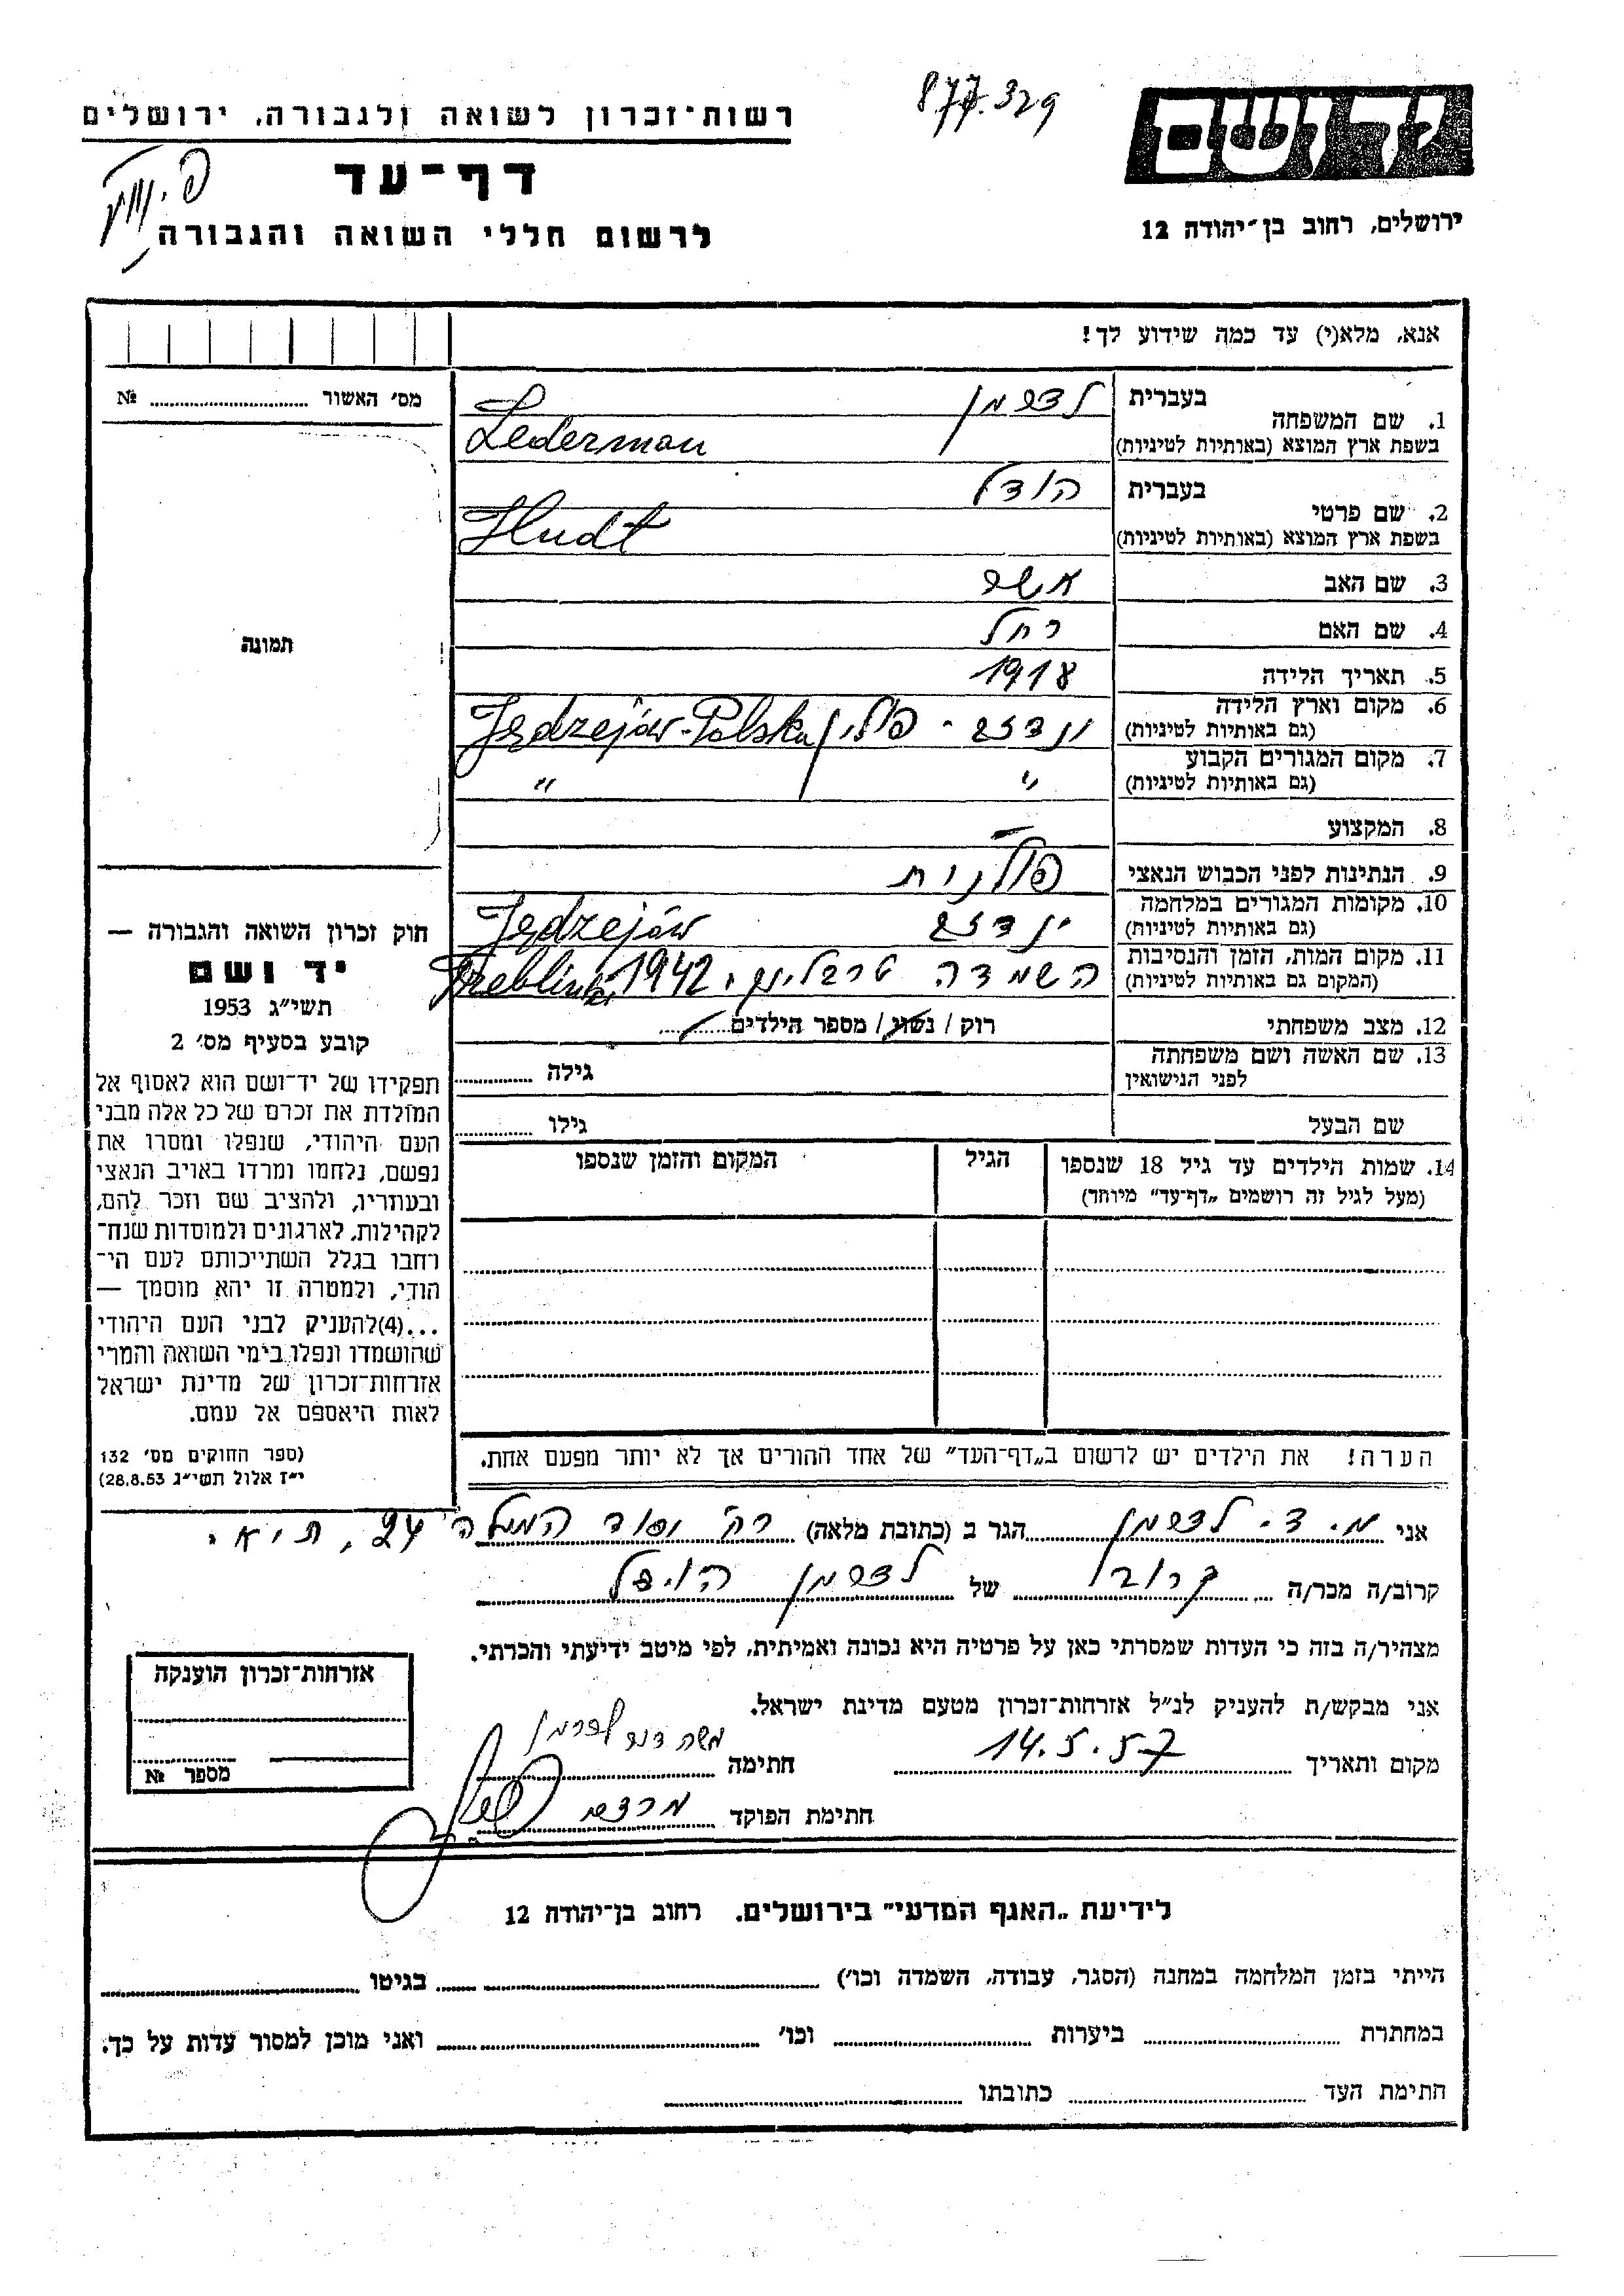 877.329
ידושם
רשות־זכרון לשואה ולגבורה, ירושלים
דף־עד
לרשום חללי השואה והגבורה
ירושלים, רחוב בן־יהודה 12
אנא, מלא(י) עד כמה שידוע לך!
מס׳ האשור № ........
תמונה
1. שם המשפחה בעברית לדרמן
בשפת ארץ המוצא (באותיות לטיניות) Lederman
2. שם פרטי בעברית הודל
בשפת ארץ המוצא (באותיות לטיניות) Hudt
3. שם האב אשר
4. שם האם רחל
5. תאריך הלידה 1918
6. מקום וארץ הלידה
(גם באותיות לטיניות) ינדזב - פולין Jędzejów-Polska
7. מקום המגורים הקבוע
(גם באותיות לטיניות) " "
8. המקצוע —
9. הנתינות לפני הכבוש הנאצי פולנית
10. מקומות המגורים במלחמה
(גם באותיות לטיניות) ינדזב Jędzejów
11. מקום המות, הזמן והנסיבות
(המקום גם באותיות לטיניות) השמדה טרבלינקי, 1942 Treblinki
12. מצב משפחתי רוק / נשוי / מספר הילדים
13. שם האשה ושם משפחתה
לפני הנישואין גילה ........
שם הבעל גילו ........
14. שמות הילדים עד גיל 18 שנספו הגיל המקום והזמן שנספו
(מעל לגיל זה רושמים „דף־עד" מיוחד)
חוק זכרון השואה והגבורה —
יד ושם
תשי״ג 1953
קובע בסעיף מס׳ 2
תפקידו של יד־ושם הוא לאסוף אל
המולדת את זכרם של כל אלה מבני
העם היהודי, שנפלו ומסרו את
נפשם, נלחמו ומרדו באויב הנאצי
ובעוזריו, ולהציב שם וזכר להם,
לקהילות, לארגונים ולמוסדות שנח־
רחבו בגלל השתייכותם לעם הי־
הודי, ולמטרה זו יהא מוסמך —
...(4)להעניק לבני העם היהודי
שהושמדו ונפלו בימי השואה והמרי
אזרחות־זכרון של מדינת ישראל
לאות היאספם אל עמם.
(ספר החוקים מס׳ 132
י״ז אלול תשי״ג 28.8.53)
הערה! את הילדים יש לרשום ב„דף־העד" של אחד ההורים אך לא יותר מפעם אחת.
אני מ. ד. לדרמן הגר ב (כתובת מלאה) 24, ת״א.
קרוב/ה מכר/ה קרובו של לדרמן הודל
מצהיר/ה בזה כי העדות שמסרתי כאן על פרטיה היא נכונה ואמיתית, לפי מיטב ידיעתי והכרתי.
אני מבקש/ת להעניק לנ״ל אזרחות־זכרון מטעם מדינת ישראל.
מקום ותאריך 14.5.57 חתימה משה דוד לדרמן
חתימת הפוקד
אזרחות־זכרון הוענקה
מספר №
לידיעת „האגף המדעי" בירושלים, רחוב בן־יהודה 12
הייתי בזמן המלחמה במחנה (הסגר, עבודה, השמדה וכו׳) ........ בגיטו ........
במחתרת ........ ביערות ........ וכו׳ ........ ואני מוכן למסור עדות על כך.
חתימת העד ........ כתובתו ........